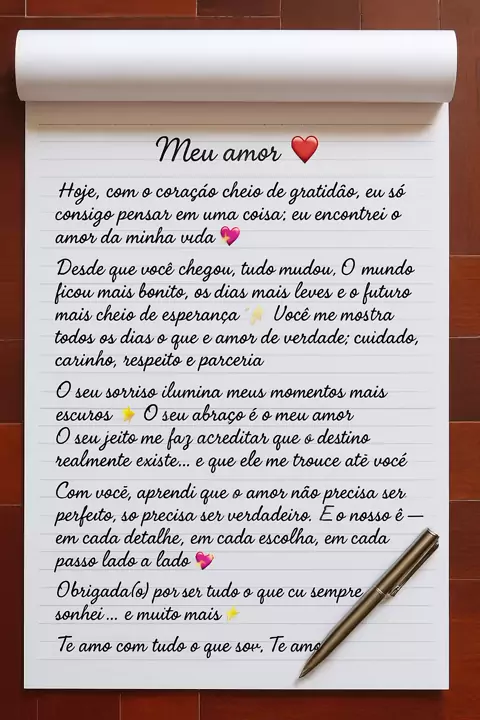 Meu amor ❤️
Hoje, com o coração cheio de gratidão, eu só
consigo pensar em uma coisa; eu encontrei o
amor da minha vıda 💖
Desde que você chegou, tudo mudou, O mundo
ficou mais bonito, os dias mais leves e o futuro
mais cheio de esperança ✨ Você me mostra
todos os dias o que e amor de verdade; cuidado,
carinho, respeito e parceria
O seu sorriso ilumina meus momentos mais
escuros ⭐ O seu abraço é o meu amor
O seu jeito me faz acreditar que o destino
realmente existe... e que ele me trouce atē você
Com você, aprendi que o amor não precisa ser
perfeito, so precisa ser verdadeiro. E o nosso ê —
em cada detalhe, em cada escolha, em cada
passo lado a lado 💖
Obrigada(o) por ser tudo o que cu sempre
sonhei... e muito mais ⭐
Te amo com tudo o que sov. Te amo